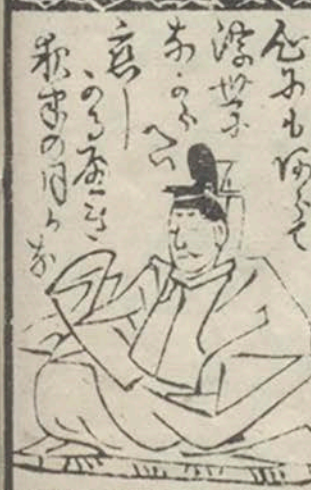 心にもあらて
浮世に
なからへは
恋し
かるへき
夜半の月かな